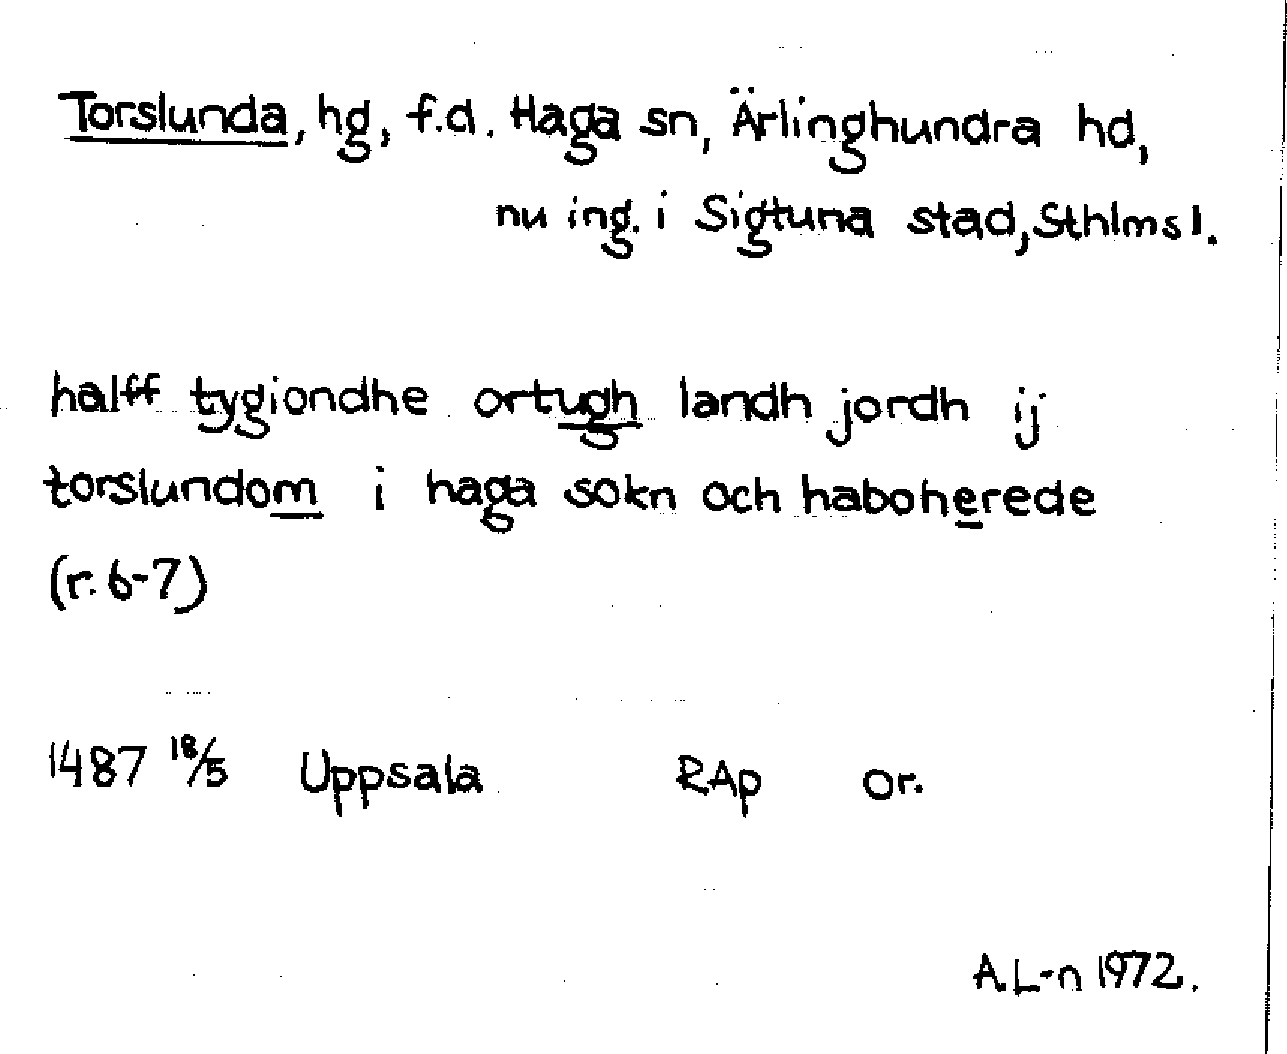 Torslunda, hg, f.d. Haga sn, Ärlinghundra hd,
nu ing. i Sigtuna stad, Sthlms l.
halff tygiondhe ortugh landh jordh ij
torslundom i haga sokn och haboherede
(r. 6-7)
1487 18/5 Uppsala RAp or.
A. L-n 1972.